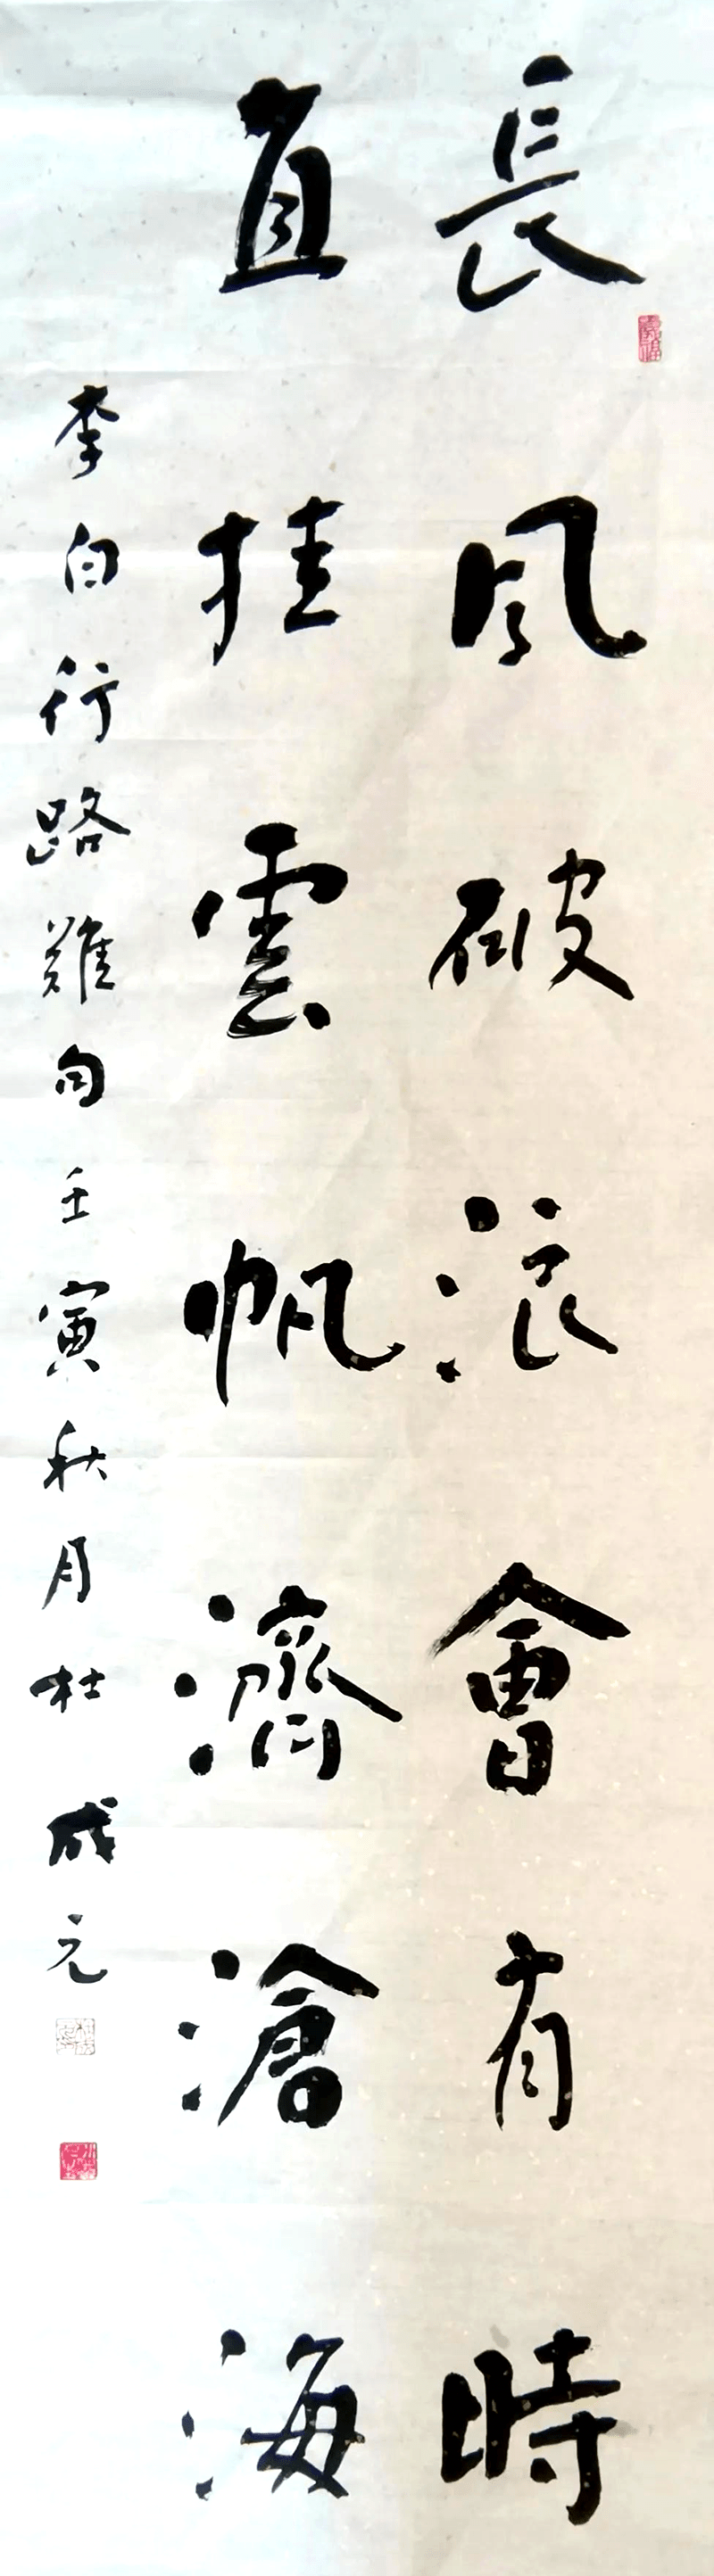 長風破浪會有時
直挂雲帆濟滄海
李白行路難句壬寅秋月杜成元